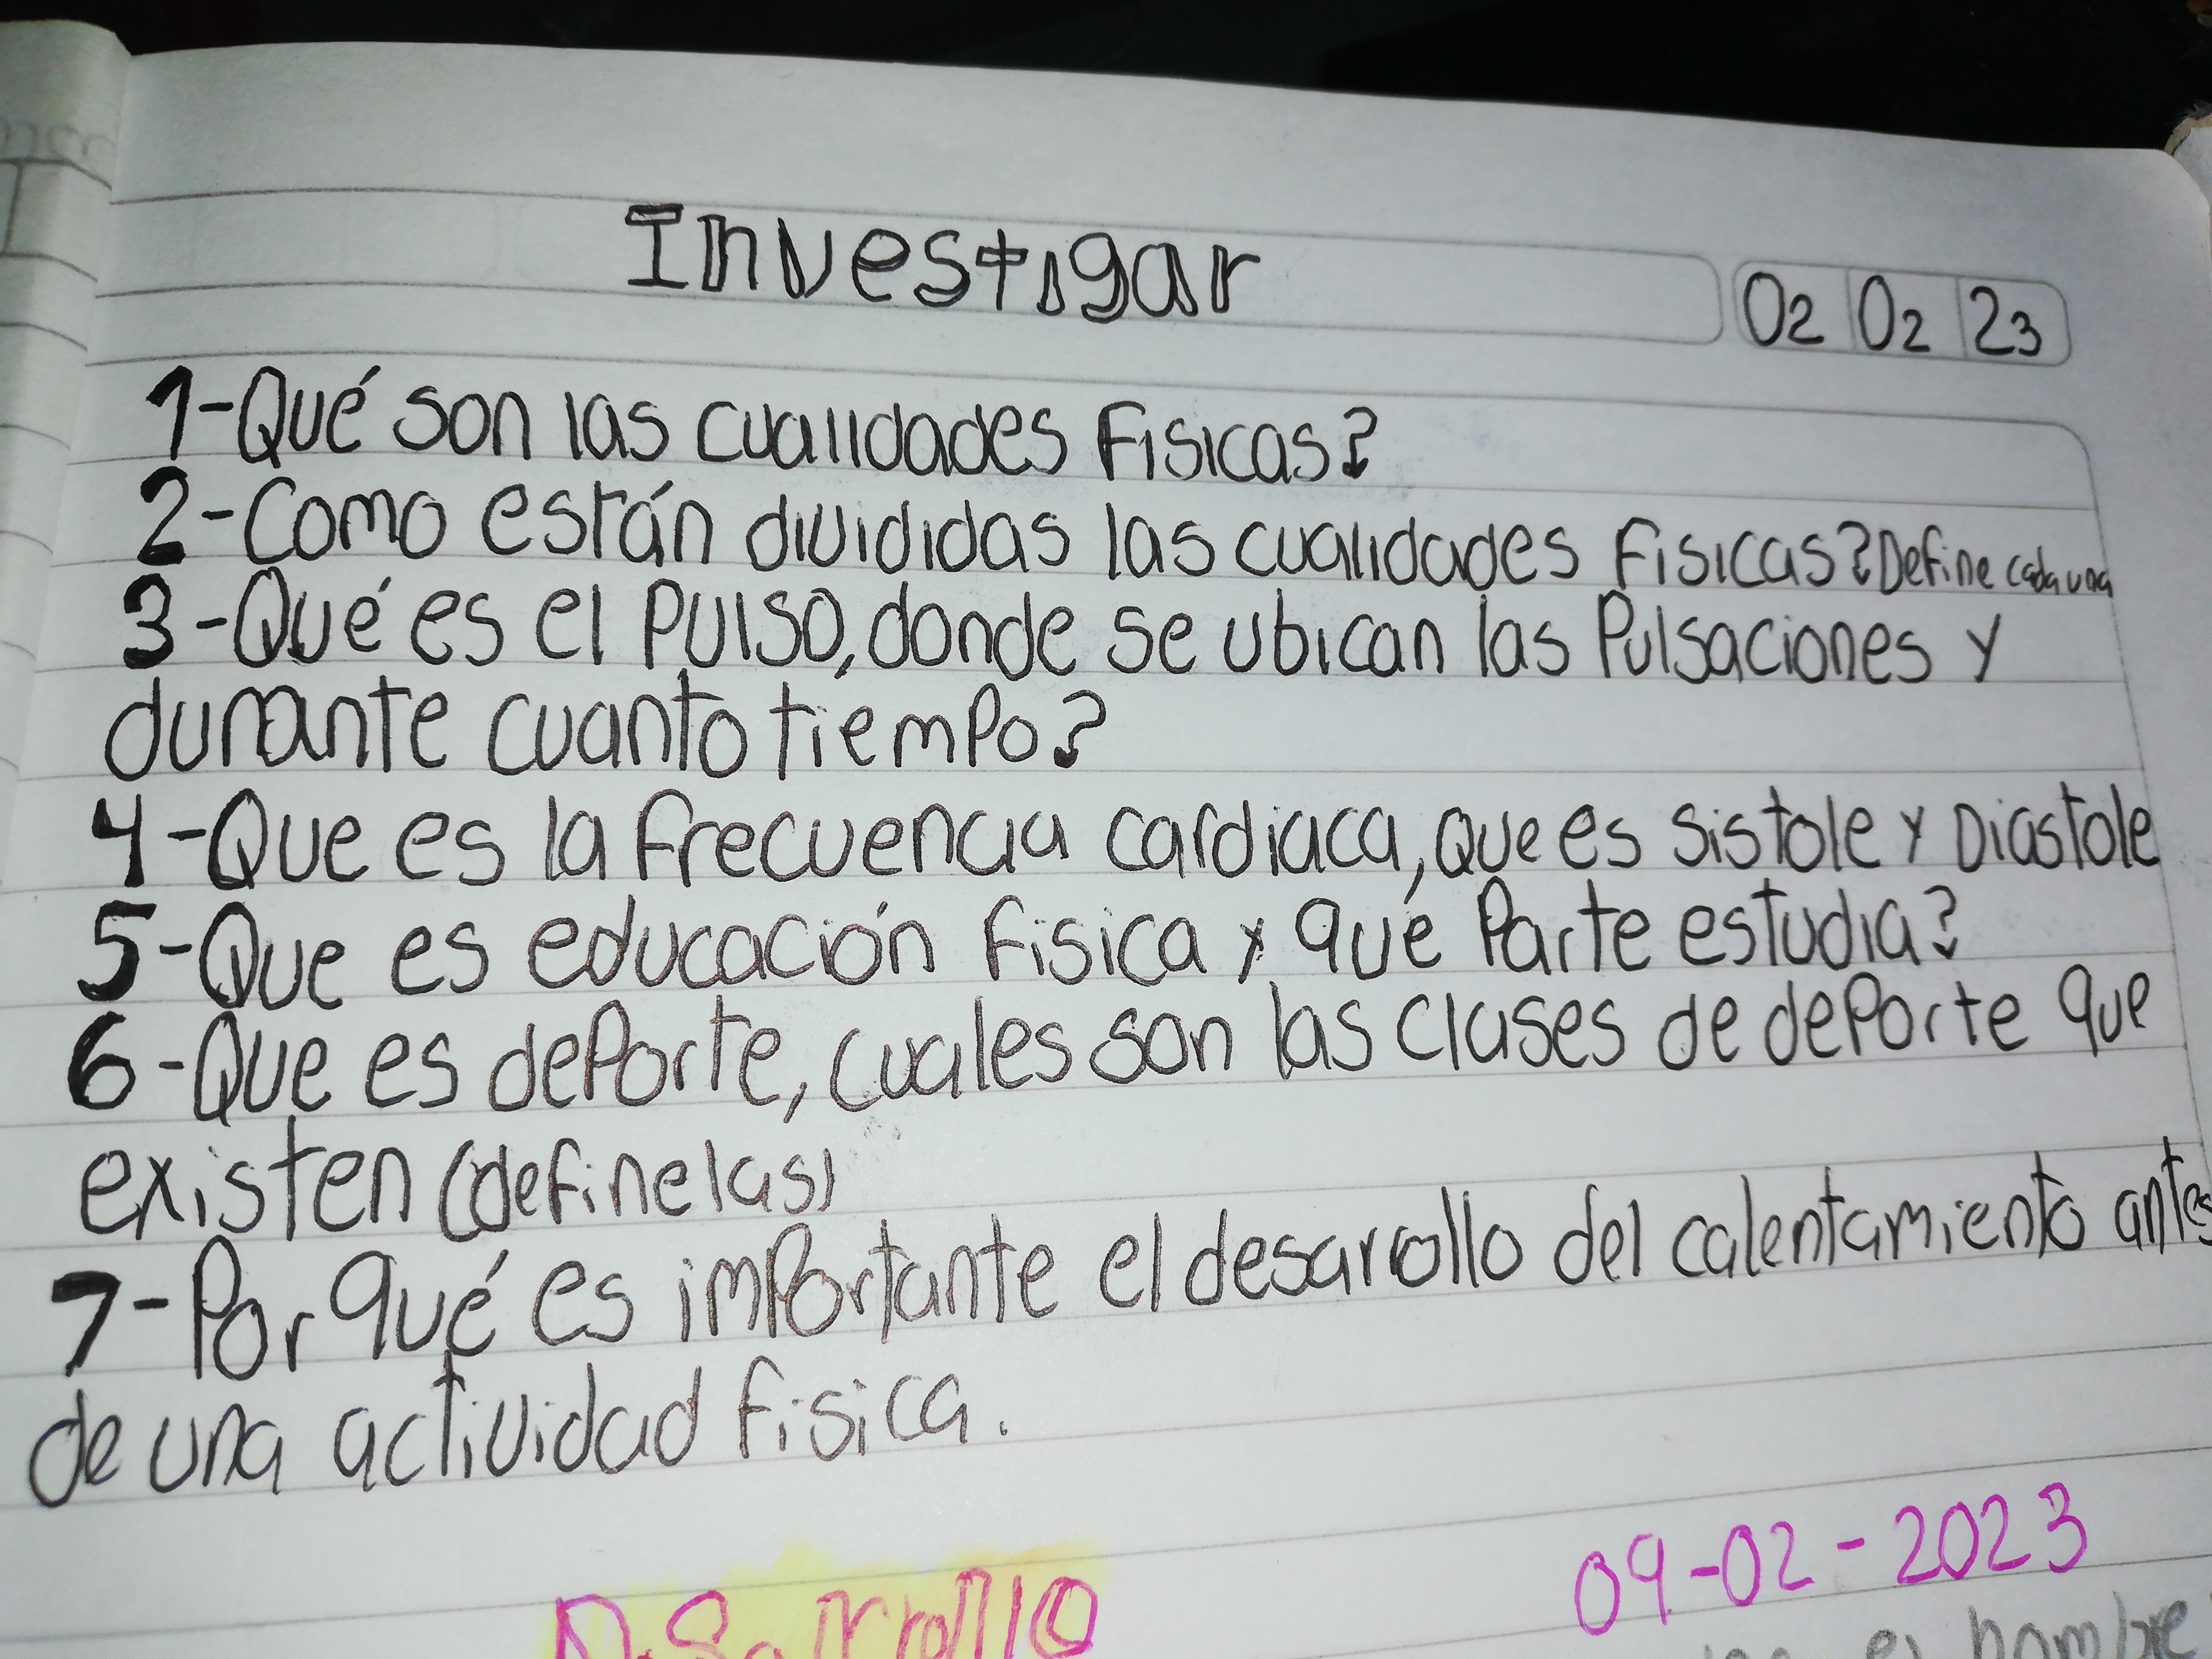 Investigar
02 02 23
1-Qué son las cualidades Fisicas?
2-Como están divididas las cualidades Fisicas? Define cada una
3-Qué es el Pulso, donde se ubican las Pulsaciones y
durante cuanto tiempo?
4-Que es la frecuencia cardiaca, que es sistole y Diastole
5-Que es educación Fisica y qué Parte estudia?
6-Que es dePorte, cuales son las clases de dePorte que
existen (definelas)
7-Por qué es imPortante el desarrollo del calentamiento antes
de una actividad fisica.
09-02-2023
Desarrollo
hombre